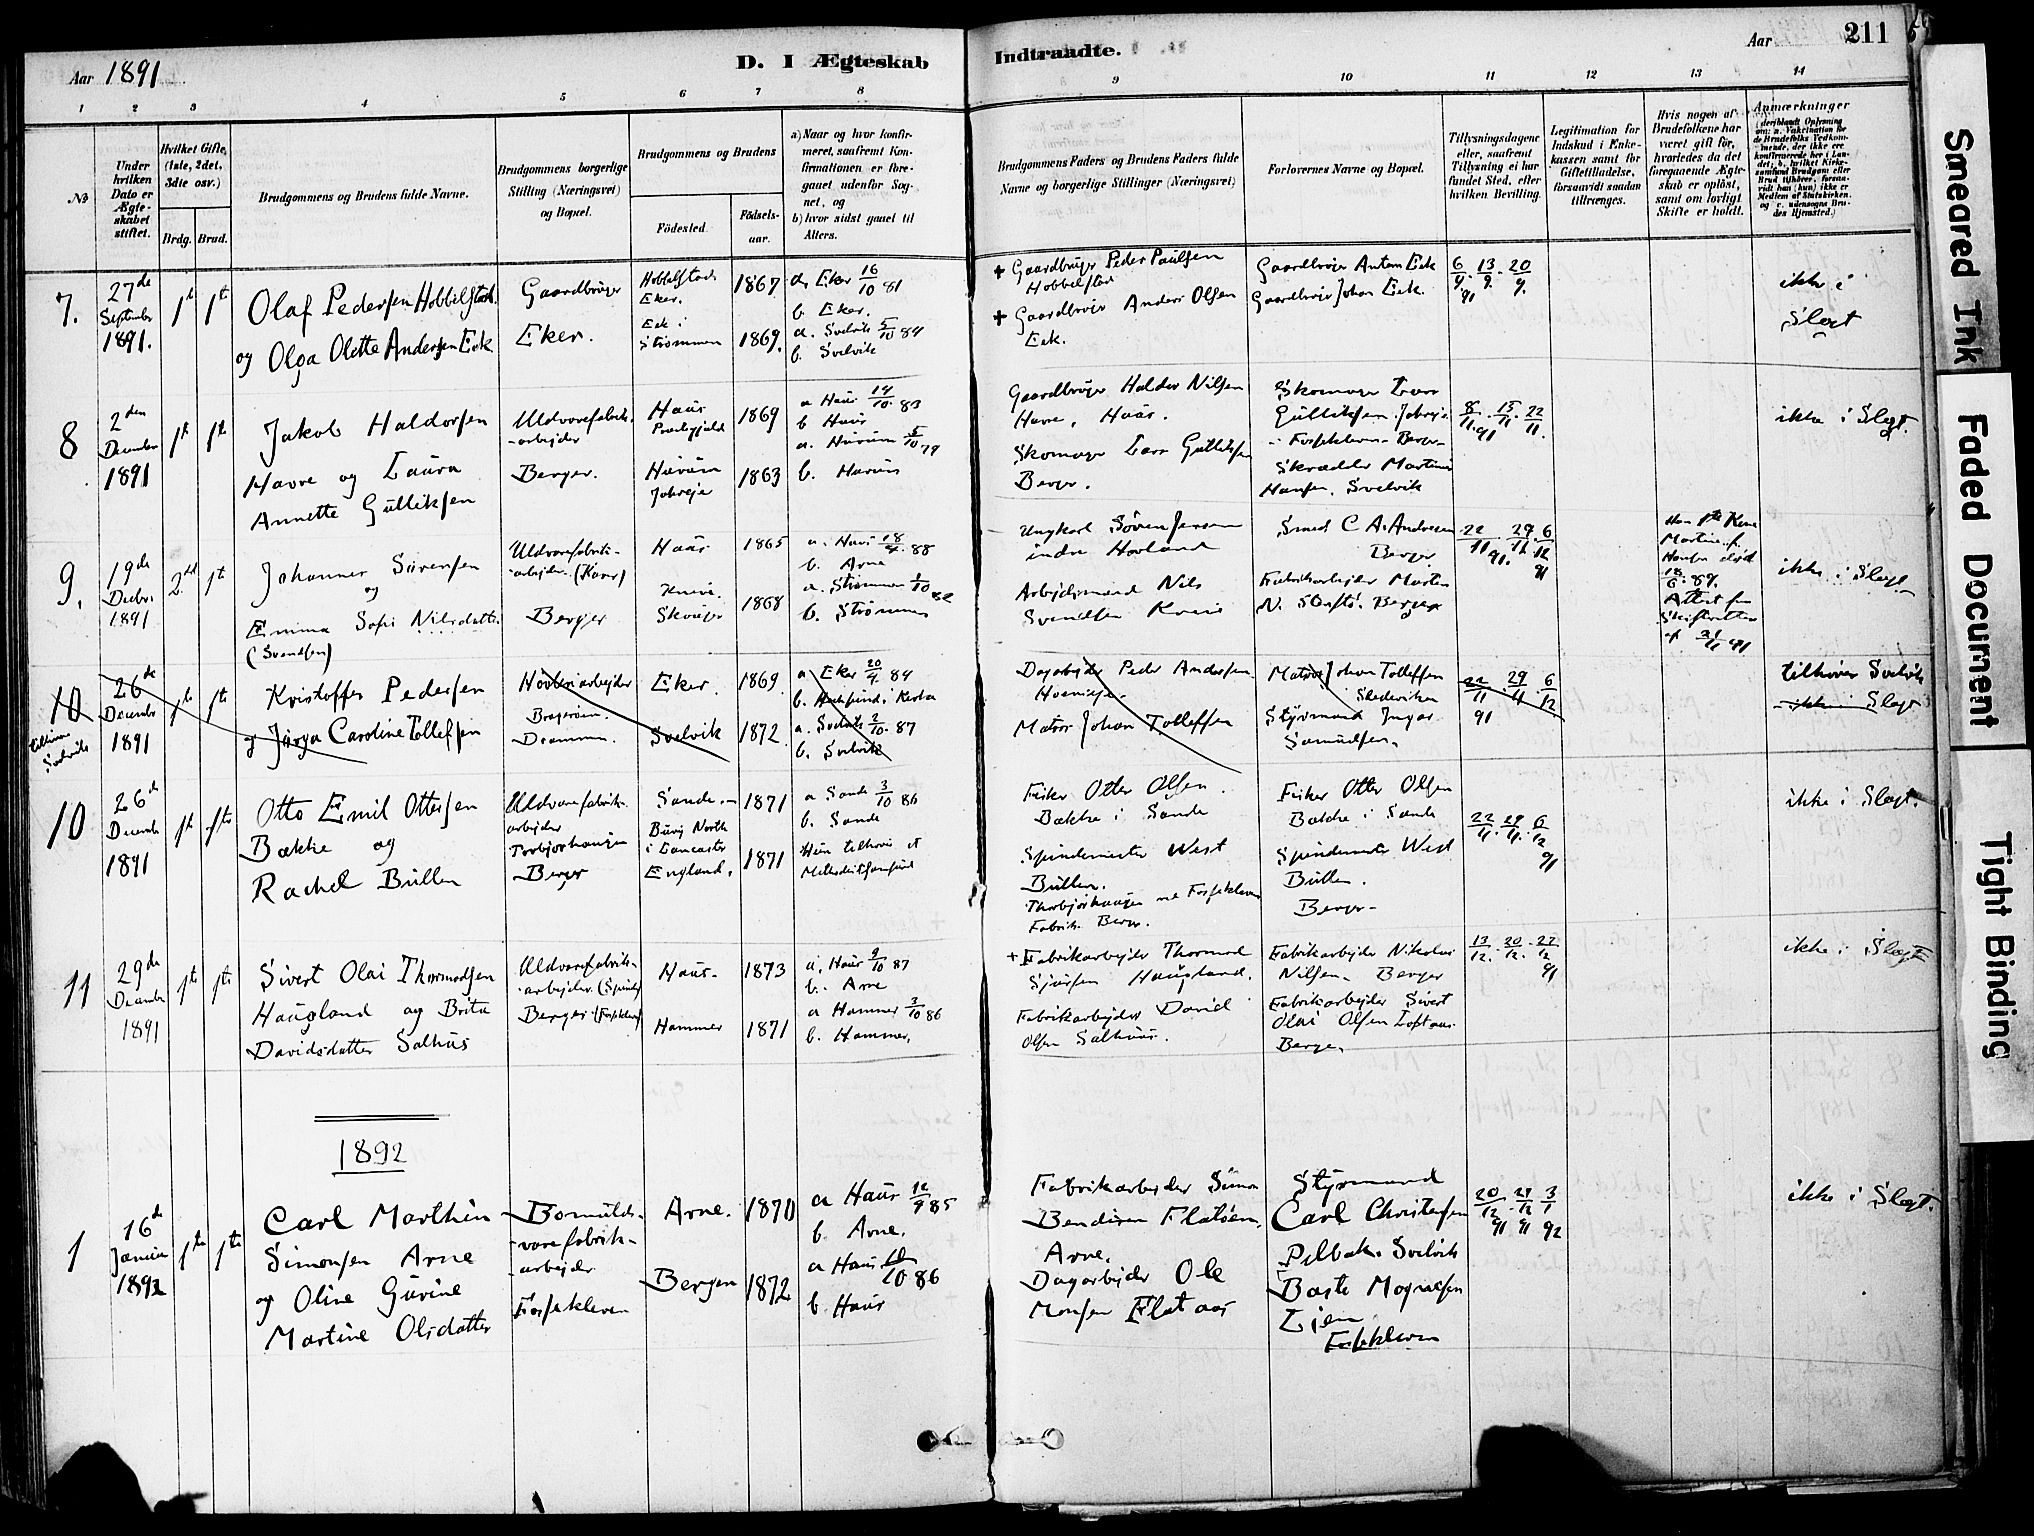 Aar 1891
D. I Ægteskab
Indtraadte.
Aar
211
1 2 3 4 5 6 7 8
9 10 11 12 13 14
No
Under
hvilken
Dato er
Ægte-
skabet
stiftet.
Hvilket Gifte,
(1ste, 2det,
3die osv.)
Brdg. Brud.
Brudgommens og Brudens fulde Navne.
Brudgommens borgerlige
Stilling (Næringsvei)
og Bopæl.
Brudgommens og Brudens
Födested.
Födsels-
aar.
a) Naar og hvor konfir-
meret, saafremt Kon-
firmationen er fore-
gaaet udenfor Sog-
net, og
b) hvor sidst gaaet til
Alters.
Brudgommens Faders og Brudens Faders fulde
Navne og borgerlige Stillinger (Næringsvei)
Forlovernes Navne og Bopæl.
Tillysningsdagene
eller, saafremt
Tillysning ei har
fundet Sted, efter
hvilken Bevilling.
Legitimation for
Indskud i Enke-
kassen samt for
Giftetilladelse,
forsaavidt saadan
tiltrænges.
Hvis nogen af
Brudefolkene har
været gift før,
hvorledes da det
foregaaende Ægte-
skab er opløst,
samt om lovligt
Skifte er holdt.
Anmærkninger
(deriblandt Oplysning
om: a. Vaktination for
de Brudefolks Vedkom-
mende, der ikke ere
konfirmerede her i Lan-
det; b. hvilket Kirke-
samfund Brudgom eller
Brud tilhører, forsaa-
vidt han (hun) ikke er
Medlem af Statskirken,
og c. udensogns Bru-
des Hjemsted.)
7.
27de
September
1891.
1ste 1ste
Olaf Pedersen Hobbelstad.
og Olga Olette Andersen Eek
Gaardbruger
Eker.
Hobbelstad
Eker.
Eek i
Strømmen
1867
1869.
a. Eker 16/10 81
b. Eker.
a. Svelvik 5/10 84
b. Svelvik
+ Gaardbruger Peder Paulsen
Hobbelstad
+ Gaardbruger Anders Olsen
Eek.
Gaardbruger Anton Eek
Gaardbruger Johan Eek.
6/9. 13/9. 20/9.
91
ikke i
Slægt
8
2den
December
1891
1ste 1ste
Jakob Haldorsen
Havre og Laura
Annette Gulliksen
Uldvarefabrik-
-arbejder
Berger.
Haus
Præstegjeld
Hurum
1869
1863
a Haus 14/10. 83
b Haus
a. Hurum 5/10 79
b. Hurum
Gaardbruger Haldor Nilsen
Havre, Haus.
Skomager Lars Gulliksen
Berger.
Skomager Lars
Gulliksen.
Fossekleven Berger
Skrædder Martin
Hansen. Svelvik
8/11. 15/11. 22/11.
91
ikke i Slægt.
9.
19de
Decbr.
1891
2det 1ste
Johannes Sørensen
og
Emma Sofie Nilsdatter
(Svendsen)
Uldvarefabrik-
-arbejder. (Karer)
Berger
Haus
Skouger
1865
1868
a. Haus 18/4. 88
b. Arne
a. Strømmen 1/10 82
b. Strømmen
Ungkarl Søren Jensen
indre Hovland
Arbejdsmand Nils
Svendsen
Smed C A. Andresen
Berger
Fabrikarbejder Morten
N. Berger
22/11. 29/11. 6/12
91
Hansen død
18/6. 89.
Attest fra
Skifteretten
af 21/11 91
ikke i Slægt.
10
tilhører
Svelvik
26de
December
1891
1ste 1ste
Kristoffer Pedersen
og Jørga Caroline Tollefsen
Høvleriarbejder
Bragerøen.
Drammen.
Eker.
Svelvik
1869
1872.
a. Eker 20/4. 84
b.
a. Svelvik 2/10. 87
b. Svelvik
Dagarbejder Peder Andersen
Matros Johan Tolleffen
Matros Johan Tolleffen
Styrmand Inger
Samuelsen.
22/11 29/11 6/12
91
tilhører Svelvik
ikke i Slægt
10
26de
Decembr
1891
1ste 1ste
Otto Emil Ottersen
Bakke og
Rachel Büllen
Uldvarefabrik-
arbejder
Berger
Sande.
i Lancaster
England.
1871
1871
a Sande 3/10 86
b. Sande
Hun tilhører et
Methodistsamfund
Fisker Otter Olsen.
Bakke i Sande
Spindemester West
Büllen.
Fabrik. Berger.
Fisker Otter Olsen
Bakke i Sande
Spindemester West
Büllen.
Berger
22/11. 29/11. 6/12
91
ikke i Slægt.
11
29de
December
1891
1ste 1ste
Sivert Olai Thormodsen
Haugland og Brita
Davidsdatter Salhus
Uldvarefabrik-
arbejder. (Spinder)
Berger. (Fossekleven)
Haus
Hammer
1873
1871
a. Haus 2/10 87
b. Arne
a Hammer 3/10 86
b. Hammer.
+ Fabrikarbejder Thormod
Sjursen Haugland.
Fabrikarbejder David
Olsen Salhus.
Fabrikarbejder Nikolai
Nilsen. Berger
Fabrikarbejder Sivert
Olai Olsen
Berger
13/12. 20/12. 27/12
91
ikke i Slægt
1892
1
16de
Januar
1892
1ste 1ste
Carl Marthin
Simonsen Arne
og Oline Gurine
Martine Olsdatter
Bomulds-
-varefabrik-
-arbejder
Fossekleven
Arne.
Bergen
1870
1872
a Haus 12/9 85
b. Arne.
a Haus 10/10 86
b. Haus
Fabrikarbejder Simon
Bendixen Flatøen,
Arne.
Dagarbejder Ole
Monsen Flataas
Styrmand
Carl Christensen
Svelvik
Fossekleven
20/12. 27/12 3/1
91 91 92
ikke i Slægt.
Smeared Ink
Faded Document
Tight Binding